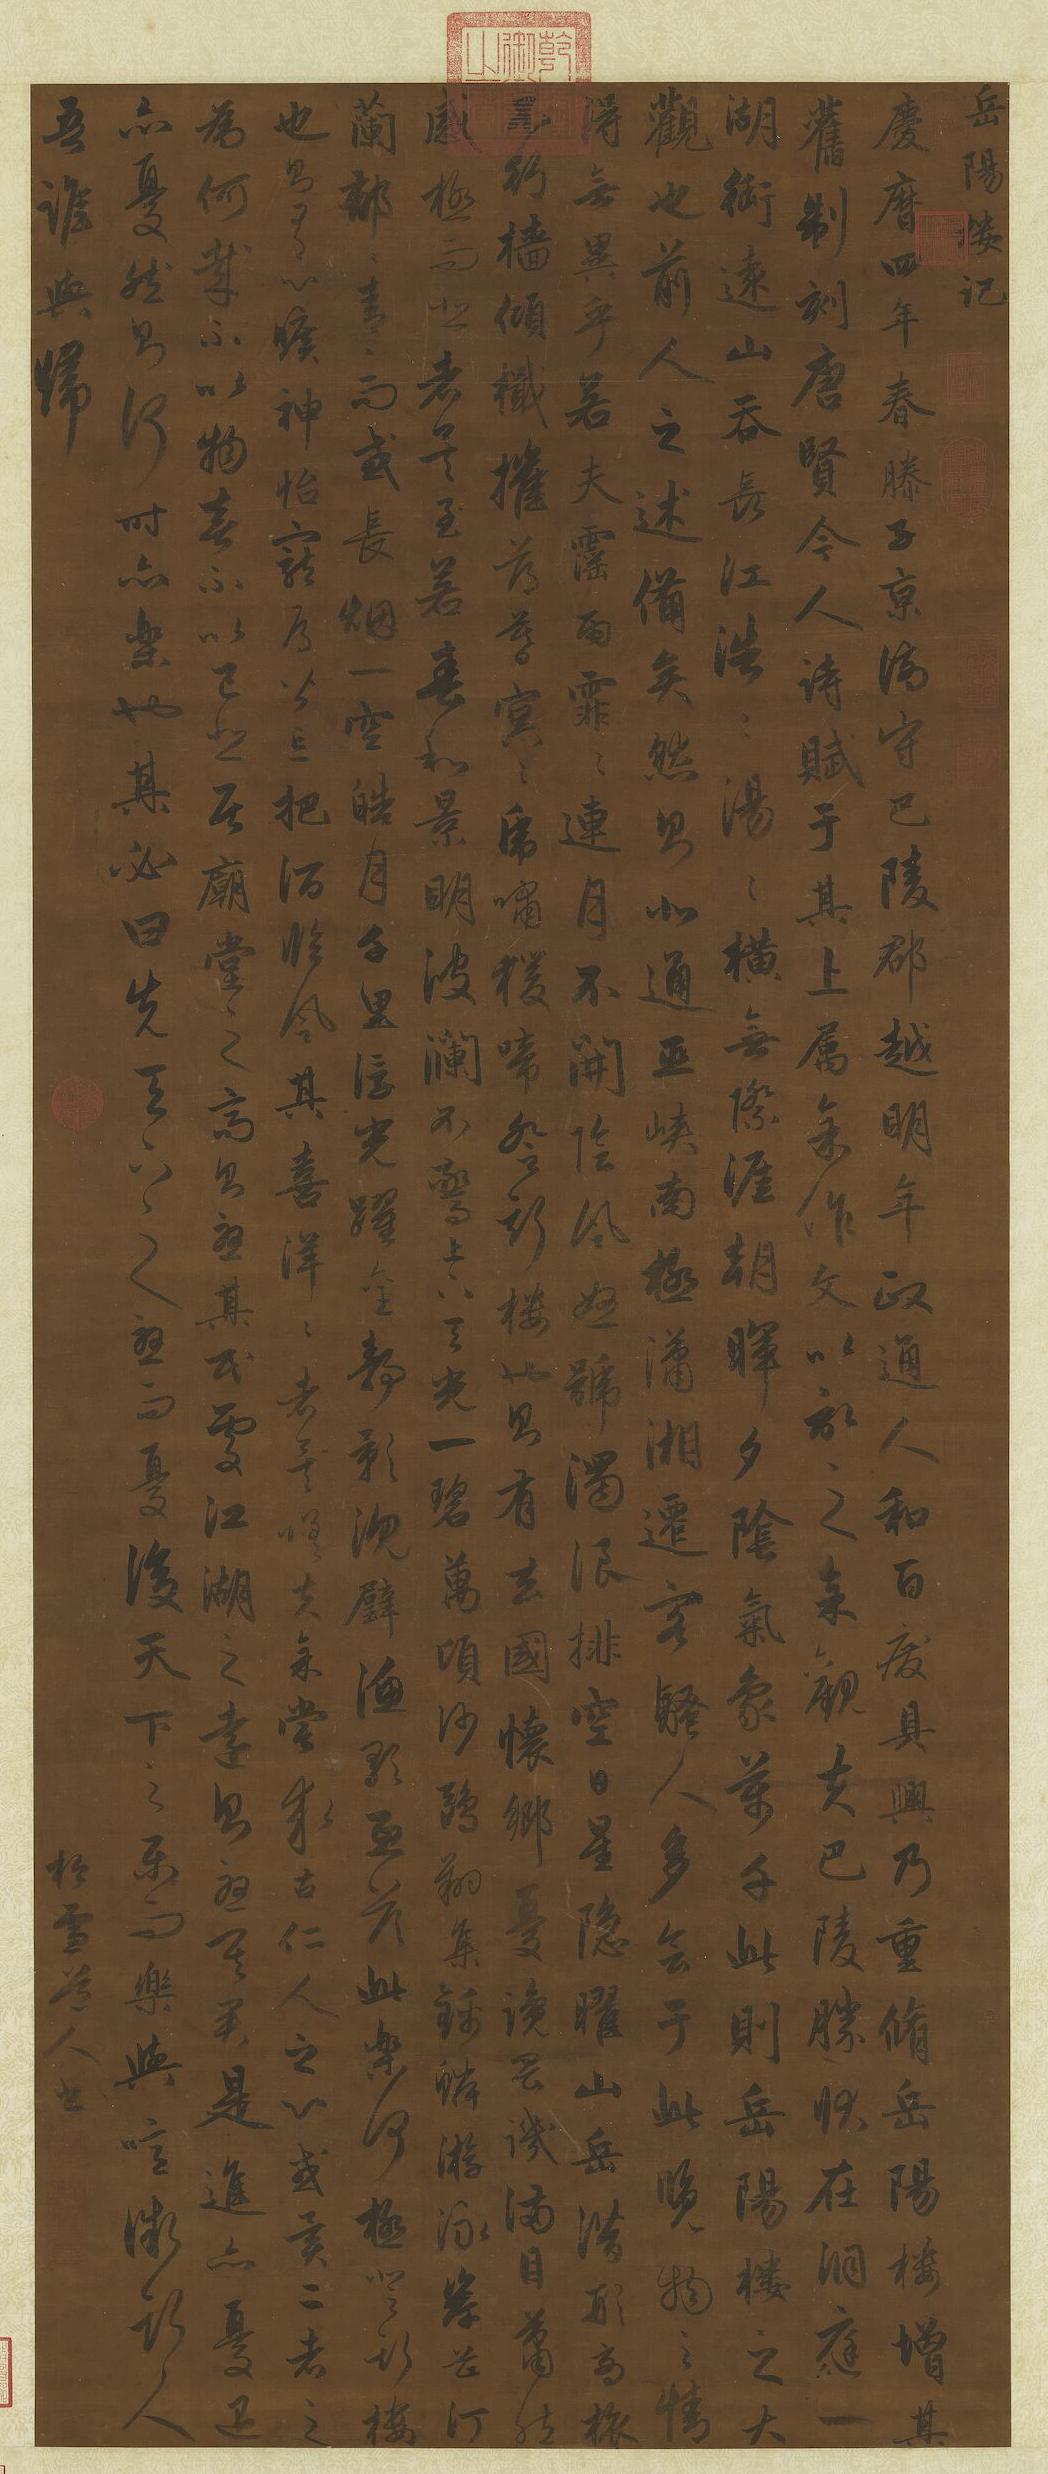 岳陽樓記
慶曆四年春滕子京謫守巴陵郡越明年政通人和百废具興乃重脩岳陽樓增其
舊制刻唐賢今人詩賦于其上属余作文以記之余觀夫巴陵勝狀在洞庭一
湖銜遠山吞長江浩〻湯〻橫無際涯朝暉夕陰氣象萬千此則岳陽樓之大
觀也前人之述備矣然則北通巫峽南極瀟湘遷客騷人多会于此覽物之情
得無異乎若夫霪雨霏〻連月不開陰風怒號濁浪排空日星隐曜山岳潛形商旅
不行檣傾檝摧薄暮冥〻虎嘯猨啼登斯樓也則有去國懷鄉憂讒畏譏滿目蕭然
感極而悲者矣至若春和景明波瀾不驚上下天光一碧萬頃沙鷗翔集錦鱗游泳岸芷汀
蘭郁〻青〻而或長烟一空皓月千里浮光躍金静影沉璧漁歌互答此樂何極登斯樓
也則有心曠神怡寵辱皆忘把酒臨風其喜洋〻者矣嗟夫余嘗求古仁人之心或異二者之
為何哉不以物喜不以己悲居廟堂之高則憂其民處江湖之遠則憂其君是進亦憂退
亦憂然則何時而樂也其必曰先天下之憂而憂後天下之樂而樂與噫微斯人
吾誰與歸
松雪道人书
乾
御
之